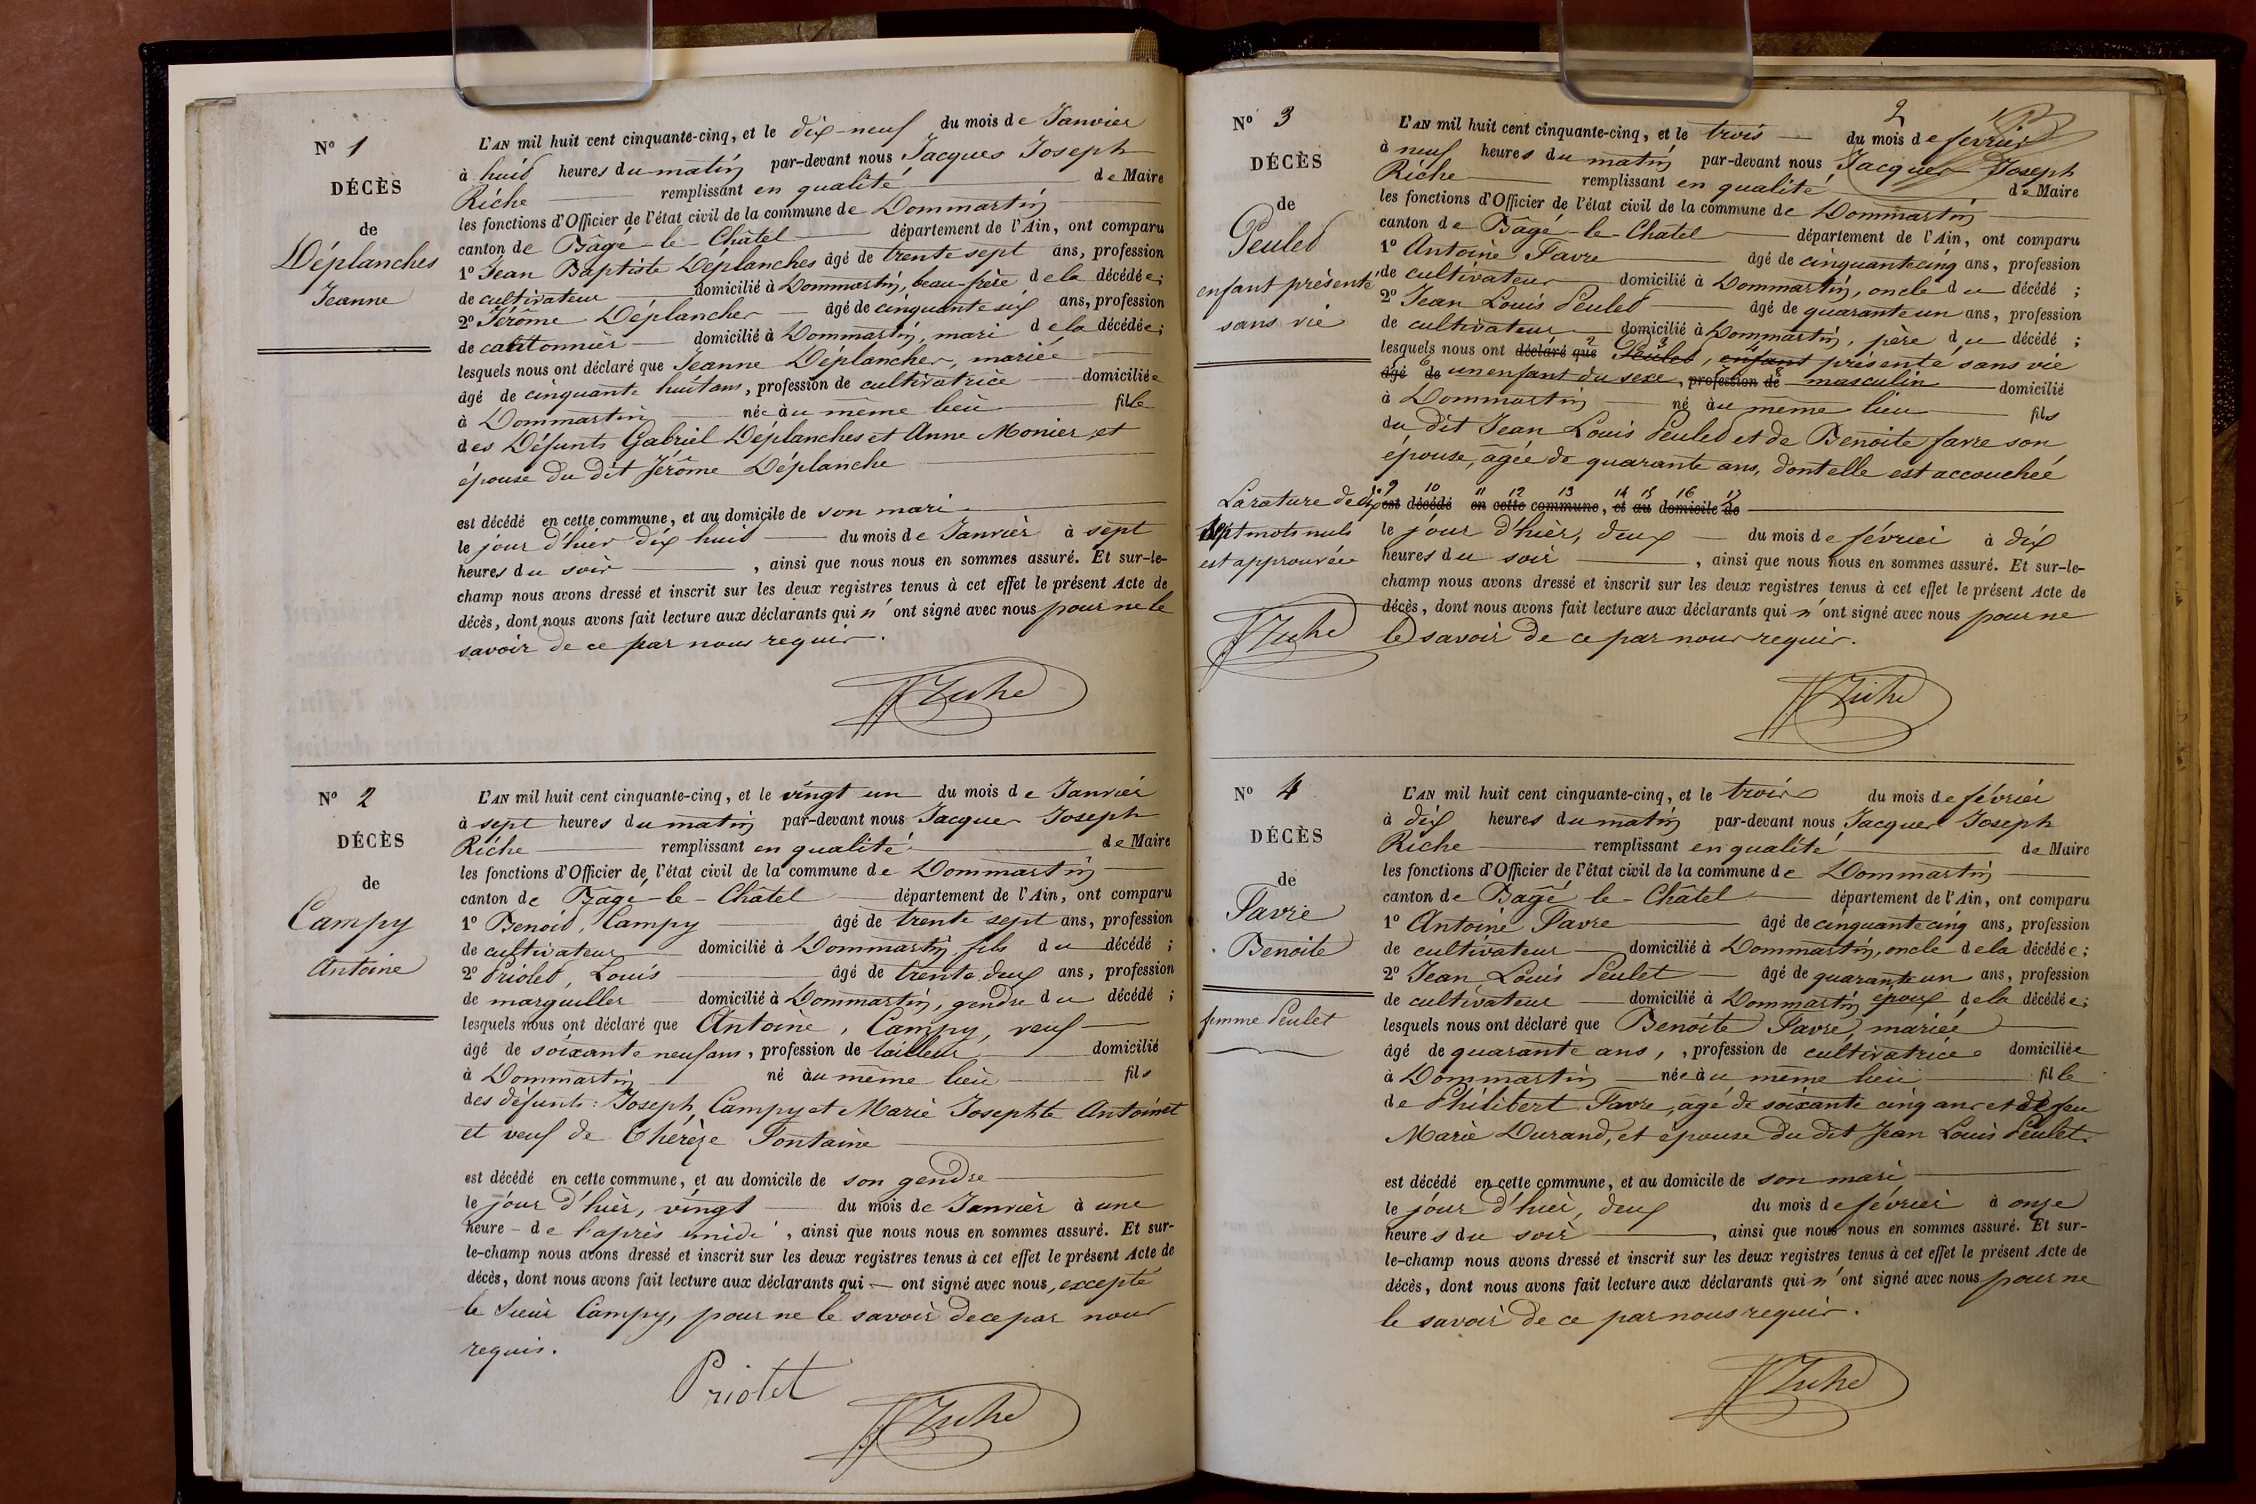 N° 1
DÉCÈS
de
Déplanches
Jeanne
L'AN mil huit cent cinquante-cinq, et le dix-neuf du mois de Janvier
à huit heures du matin par-devant nous Jacques Joseph
Riche remplissant en qualité de Maire
les fonctions d'Officier de l'état civil de la commune de Dommartin
canton de Bâgé-le-Châtel département de l'Ain, ont comparu
1° Jean Baptiste Déplanches âgé de trente sept ans, profession
de cultivateur domicilié à Dommartin, beau-frère de la décédée;
2° Jérôme Déplanches âgé de cinquante six ans, profession
de cantonnier domicilié à Dommartin, mari de la décédée;
lesquels nous ont déclaré que Jeanne Déplanches, mariée
âgé de cinquante huit ans, profession de cultivatrice domiciliée
à Dommartin née au même lieu fille
des Défunts Gabriel Déplanches et Anne Monier, et
épouse du dit Jérôme Déplanche
est décédé en cette commune, et au domicile de son mari
le jour d'hier dix huit du mois de Janvier à sept
heures du soir, ainsi que nous nous en sommes assuré. Et sur-le-
champ nous avons dressé et inscrit sur les deux registres tenus à cet effet le présent Acte de
décès, dont nous avons fait lecture aux déclarants qui n'ont signé avec nous pour ne le
savoir de ce par nous requis.
Riche
N° 2
DÉCÈS
de
Campy
Antoine
L'AN mil huit cent cinquante-cinq, et le vingt un du mois de Janvier
à sept heures du matin par-devant nous Jacques Joseph
Riche remplissant en qualité de Maire
les fonctions d'Officier de l'état civil de la commune de Dommartin
canton de Bâgé-le-Châtel département de l'Ain, ont comparu
1° Benoit, Campy âgé de trente sept ans, profession
de cultivateur domicilié à Dommartin, fils du décédé;
2° Priolet, Louis âgé de trente deux ans, profession
de marguiller domicilié à Dommartin, gendre du décédé;
lesquels nous ont déclaré que Antoine, Campy, veuf
âgé de soixante neuf ans, profession de tailleur domicilié
à Dommartin né au même lieu fils
des défunts: Joseph Campy et Marie Josephte Antoinet
et veuf de Thérèze Fontaine
est décédé en cette commune, et au domicile de son gendre
le jour d'hier, vingt du mois de Janvier à une
heure de l'après midi, ainsi que nous nous en sommes assuré. Et sur-
le-champ nous avons dressé et inscrit sur les deux registres tenus à cet effet le présent Acte de
décès, dont nous avons fait lecture aux déclarants qui ont signé avec nous, excepté
le Sieur Campy, pour ne le savoir de ce par nous
requis.
Priolet
Riche
2
N° 3
DÉCÈS
de
Peulet
enfant présenté
sans vie
La rature de dix
sept mots nuls
est approuvée
Riche
L'AN mil huit cent cinquante-cinq, et le trois du mois de février
à neuf heures du matin par-devant nous Jacques Joseph
Riche remplissant en qualité de Maire
les fonctions d'Officier de l'état civil de la commune de Dommartin
canton de Bâgé-le-Chatel département de l'Ain, ont comparu
1° Antoine Favre âgé de cinquante cinq ans, profession
de cultivateur domicilié à Dommartin, oncle du décédé;
2° Jean Louis Peulet âgé de quarante un ans, profession
de cultivateur domicilié à Dommartin, père du décédé;
lesquels nous ont déclaré que Peulet, enfant présenté sans vie
âgé de un enfant du sexe, profession de masculin domicilié
à Dommartin né au même lieu fils
du dit Jean Louis Peulet et de Benoite favre son
épouse, âgée de quarante ans, dont elle est accouchée
est décédé en cette commune, et au domicile de
le jour d'hier, deux du mois de février à dix
heures du soir, ainsi que nous nous en sommes assuré. Et sur-le-
champ nous avons dressé et inscrit sur les deux registres tenus à cet effet le présent Acte de
décès, dont nous avons fait lecture aux déclarants qui n'ont signé avec nous pour ne
le savoir de ce par nous requis.
Riche
N° 4
DÉCÈS
de
Favre
Benoite
femme Peulet
L'AN mil huit cent cinquante-cinq, et le trois du mois de février
à dix heures du matin par-devant nous Jacques Joseph
Riche remplissant en qualité de Maire
les fonctions d'Officier de l'état civil de la commune de Dommartin
canton de Bagé-le-Châtel département de l'Ain, ont comparu
1° Antoine Favre âgé de cinquante cinq ans, profession
de cultivateur domicilié à Dommartin, oncle de la décédée;
2° Jean Louis Peulet âgé de quarante un ans, profession
de cultivateur domicilié à Dommartin époux de la décédée;
lesquels nous ont déclaré que Benoite Favre, mariée
âgé de quarante ans, , profession de cultivatrice domiciliée
à Dommartin née au même lieu fille
de Philibert Favre, âgé de soixante cinq ans et de feu
Marie Durand, et épouse du dit Jean Louis Peulet.
est décédé en cette commune, et au domicile de son mari
le jour d'hier, deux du mois de février à onze
heures du soir, ainsi que nous nous en sommes assuré. Et sur-
le-champ nous avons dressé et inscrit sur les deux registres tenus à cet effet le présent Acte de
décès, dont nous avons fait lecture aux déclarants qui n'ont signé avec nous pour ne
le savoir de ce par nous requis.
Riche